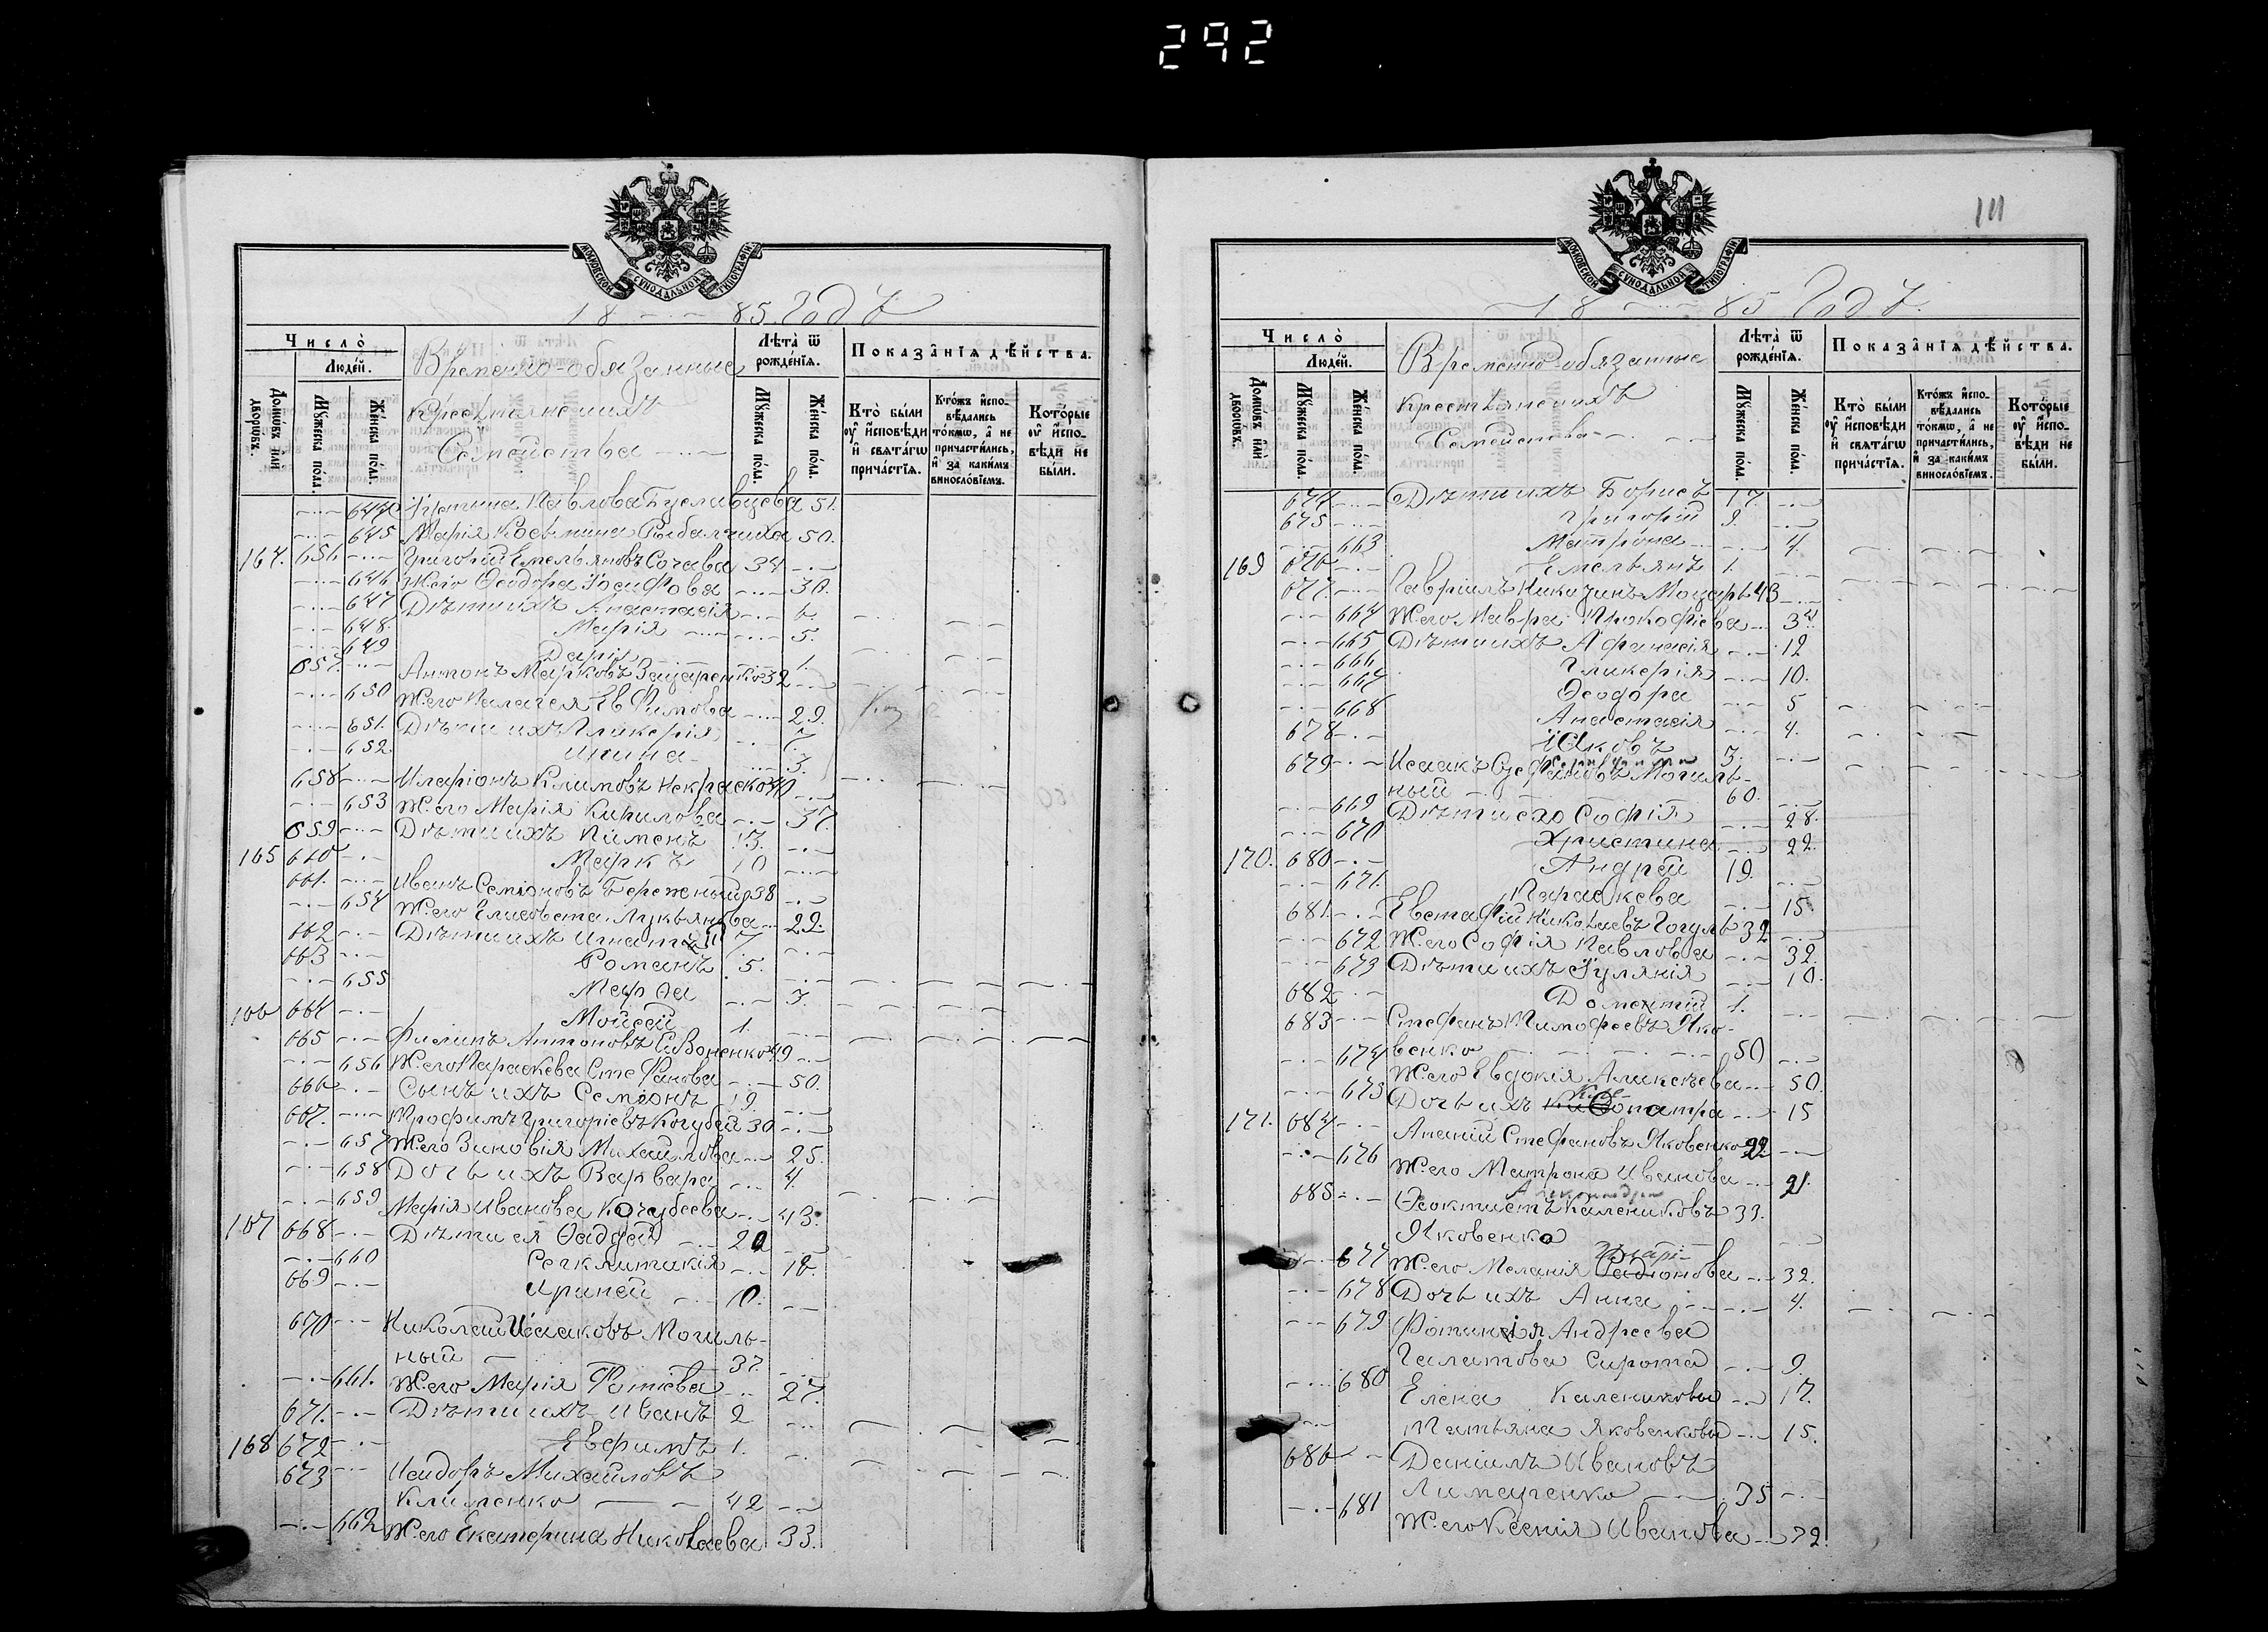 292
МОСКОВСКОЙ СѴНОДАЛЬНОЙ ТИПОГРАФІИ
18 85 Годъ
Число̀
Людéй.
Домѡ́въ и҆лѝ дворѡ́въ.
Мꙋ́жеска по́ла.
Же́нска по́ла.
Временно-обязанные
крестьяне и ихъ
Семейства
Лѣ́та ѿ рожде́нїѧ.
Мꙋ́жеска по́ла.
Же́нска по́ла.
Показа̑нїѧ дѣ́йства.
Кто̀ бы́ли оу҆ и҆́сповѣди и҆ свѧта́гѡ прича́стїѧ.
Кто́жъ и҆спо-вѣ́дались то́кмѡ, а҆ не причасти́лись, и҆ за каки́мъ винослóвїемъ.
Кото́рые оу҆ и҆́спо-вѣди не бы́ли.
644 Павлова 51.
645 Марія Косьмина 50.
164. 656 Григорій Емельяновъ Сочава 34
646 Ж. его Ѳеодора Іосифова 30.
647 Дѣти ихъ Анастасія 6
648. Марія 5.
649 Дарія 1.
657. Антонъ Марковъ 32
650 Ж. его Пелагея Евфимова 29.
651. Дѣти ихъ Гликерія 7.
652 Ирина 3.
658 Иларіонъ Климовъ Некрасъ 40
653 Ж. его Марія Кирилова 37.
659 Дѣти ихъ Пименъ 13.
165 660 Маркъ 10
661. Иванъ Семіоновъ Бережный 38
654 Ж. его Елисавета Лукьянова 29.
662 Дѣти ихъ Игнатій 7
663 Романъ 5.
655 Марѳа 3.
166 664 Мойсей 1.
665 Филипъ Антоновъ 49
656 Ж. его Параскева Стефанова 50.
666 Сынъ ихъ Семіонъ 19.
667. Трофимъ Григоріевъ Кочубей 30
657 Ж. его Зиновія Михайлова 25.
658 Дочь ихъ Варвара 4.
659 Марія Иванова Кочубеева 43.
167 668 Дѣти ея Ѳаддей 20
660 Сегклитикія 18.
669 Ириней 10.
670 Николай Исааковъ Могиль-
ный 37.
661. Ж. его Марія 27.
671. Дѣти ихъ Иванъ 2
168 672 Евфимъ 1.
673 Исидоръ Михайловъ
Клименко 42
662 Ж. его Екатерина Николаева 33.
111
МОСКОВСКОЙ СѴНОДАЛЬНОЙ ТИПОГРАФІИ
18 85 Годъ.
Число̀
Людéй.
Домѡ́въ и҆лѝ дворѡ́въ.
Мꙋ́жеска по́ла.
Же́нска по́ла.
Временно-обязанные
крестьяне и ихъ
Семейства
Лѣ́та ѿ рожде́нїѧ.
Мꙋ́жеска по́ла.
Же́нска по́ла.
Показа̑нїѧ дѣ́йства.
Кто̀ бы́ли оу҆ и҆́сповѣди и҆ свѧта́гѡ прича́стїѧ.
Кто́жъ и҆спо-вѣ́дались то́кмѡ, а҆ не причасти́лись, и҆ за каки́мъ винослóвїемъ.
Кото́рые оу҆ и҆́спо-вѣди не бы́ли.
674 Дѣти ихъ Борисъ 17.
675 Григорій 9.
663 Матрона 4.
169 676 Емельянъ 1.
677. Гавріилъ 43
664 Ж. его Мавра Прокофіева 34.
665 Дѣти ихъ Афанасія 12
666 Гликерія 10.
667 Ѳеодора 5
668 Анастасія 4.
678 Іаковъ 3.
679 Исаакъ Стефановъ Могиль-
ный 60.
669 Дѣти его Софія 28.
670 Христина 22.
170. 680 Андрей 19.
671. Параскева 15.
681. Евстафій Николаевъ Гогуль 32
672 Ж. его Софія Павлова 32.
673 Дѣти ихъ Іулянія 10.
682 Дометій 1.
683 Стефанъ Тимофеевъ Яко-
674 венко 50
Ж. его Евдокія Аликсѣева 50.
675 Дочь ихъ патра 15
171. 684 Ананій Стефановъ Яковенко 22
676 Ж. его Матрона Иванова 21.
685 Ѳеоктистъ Калениковъ 33.
Яковенко
677 Ж. его Меланія Радіонова 32.
678 Дочь ихъ Анна 4.
679 Фотинія Андреева
Галатова сирота 9.
680 Елена Каленикова 17.
Татьяна Яковенкова 15.
686 Даніилъ Ивановъ
35
681 Ж. его Ксенія Иванова 32.